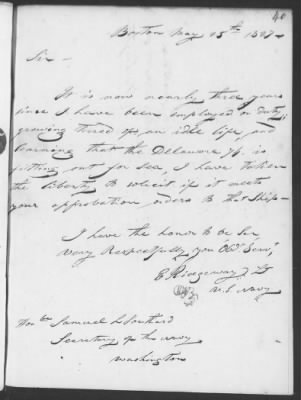 40
Boston May 15th 1827 -
Sir -
It is now nearly three years
since I have been employed on duty,
growing tired of an idle life and
learning that the Delaware 74 is
fitting out for sea, I have taken
the liberty to solicit if it meets
your approbation orders to that Ship -
I have the honor to be Sir
Very Respectfully your Obt Servt
E Ridgeway Lt
U.S. Navy
Honble Samuel L Southard
Secretary of the navy
Washington